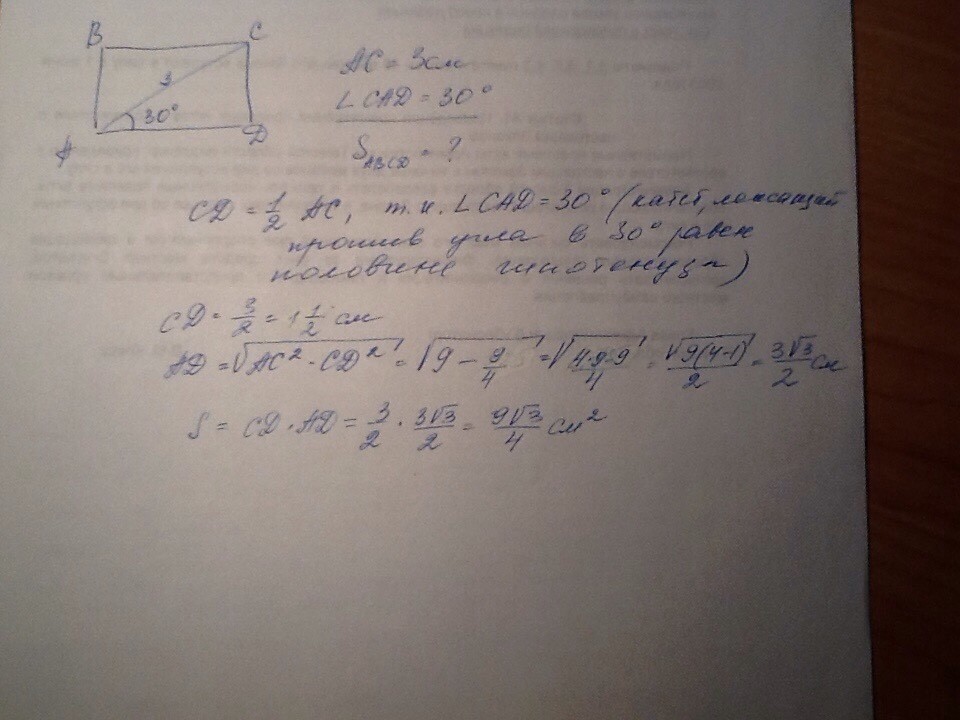 B C
3
30°
A D
AC = 3см
∠CAD = 30°
S_ABCD = ?
CD = 1/2 AC, т.к. ∠CAD = 30° (катет, лежащий
против угла в 30° равен
половине гипотенузы)
CD = 3/2 = 1 1/2 см
AD = √(AC² - CD²) = √(9 - 9/4) = √((4·9-9)/4) = √(9(4-1))/2 = 3√3/2 см
S = CD · AD = 3/2 · 3√3/2 = 9√3/4 см²